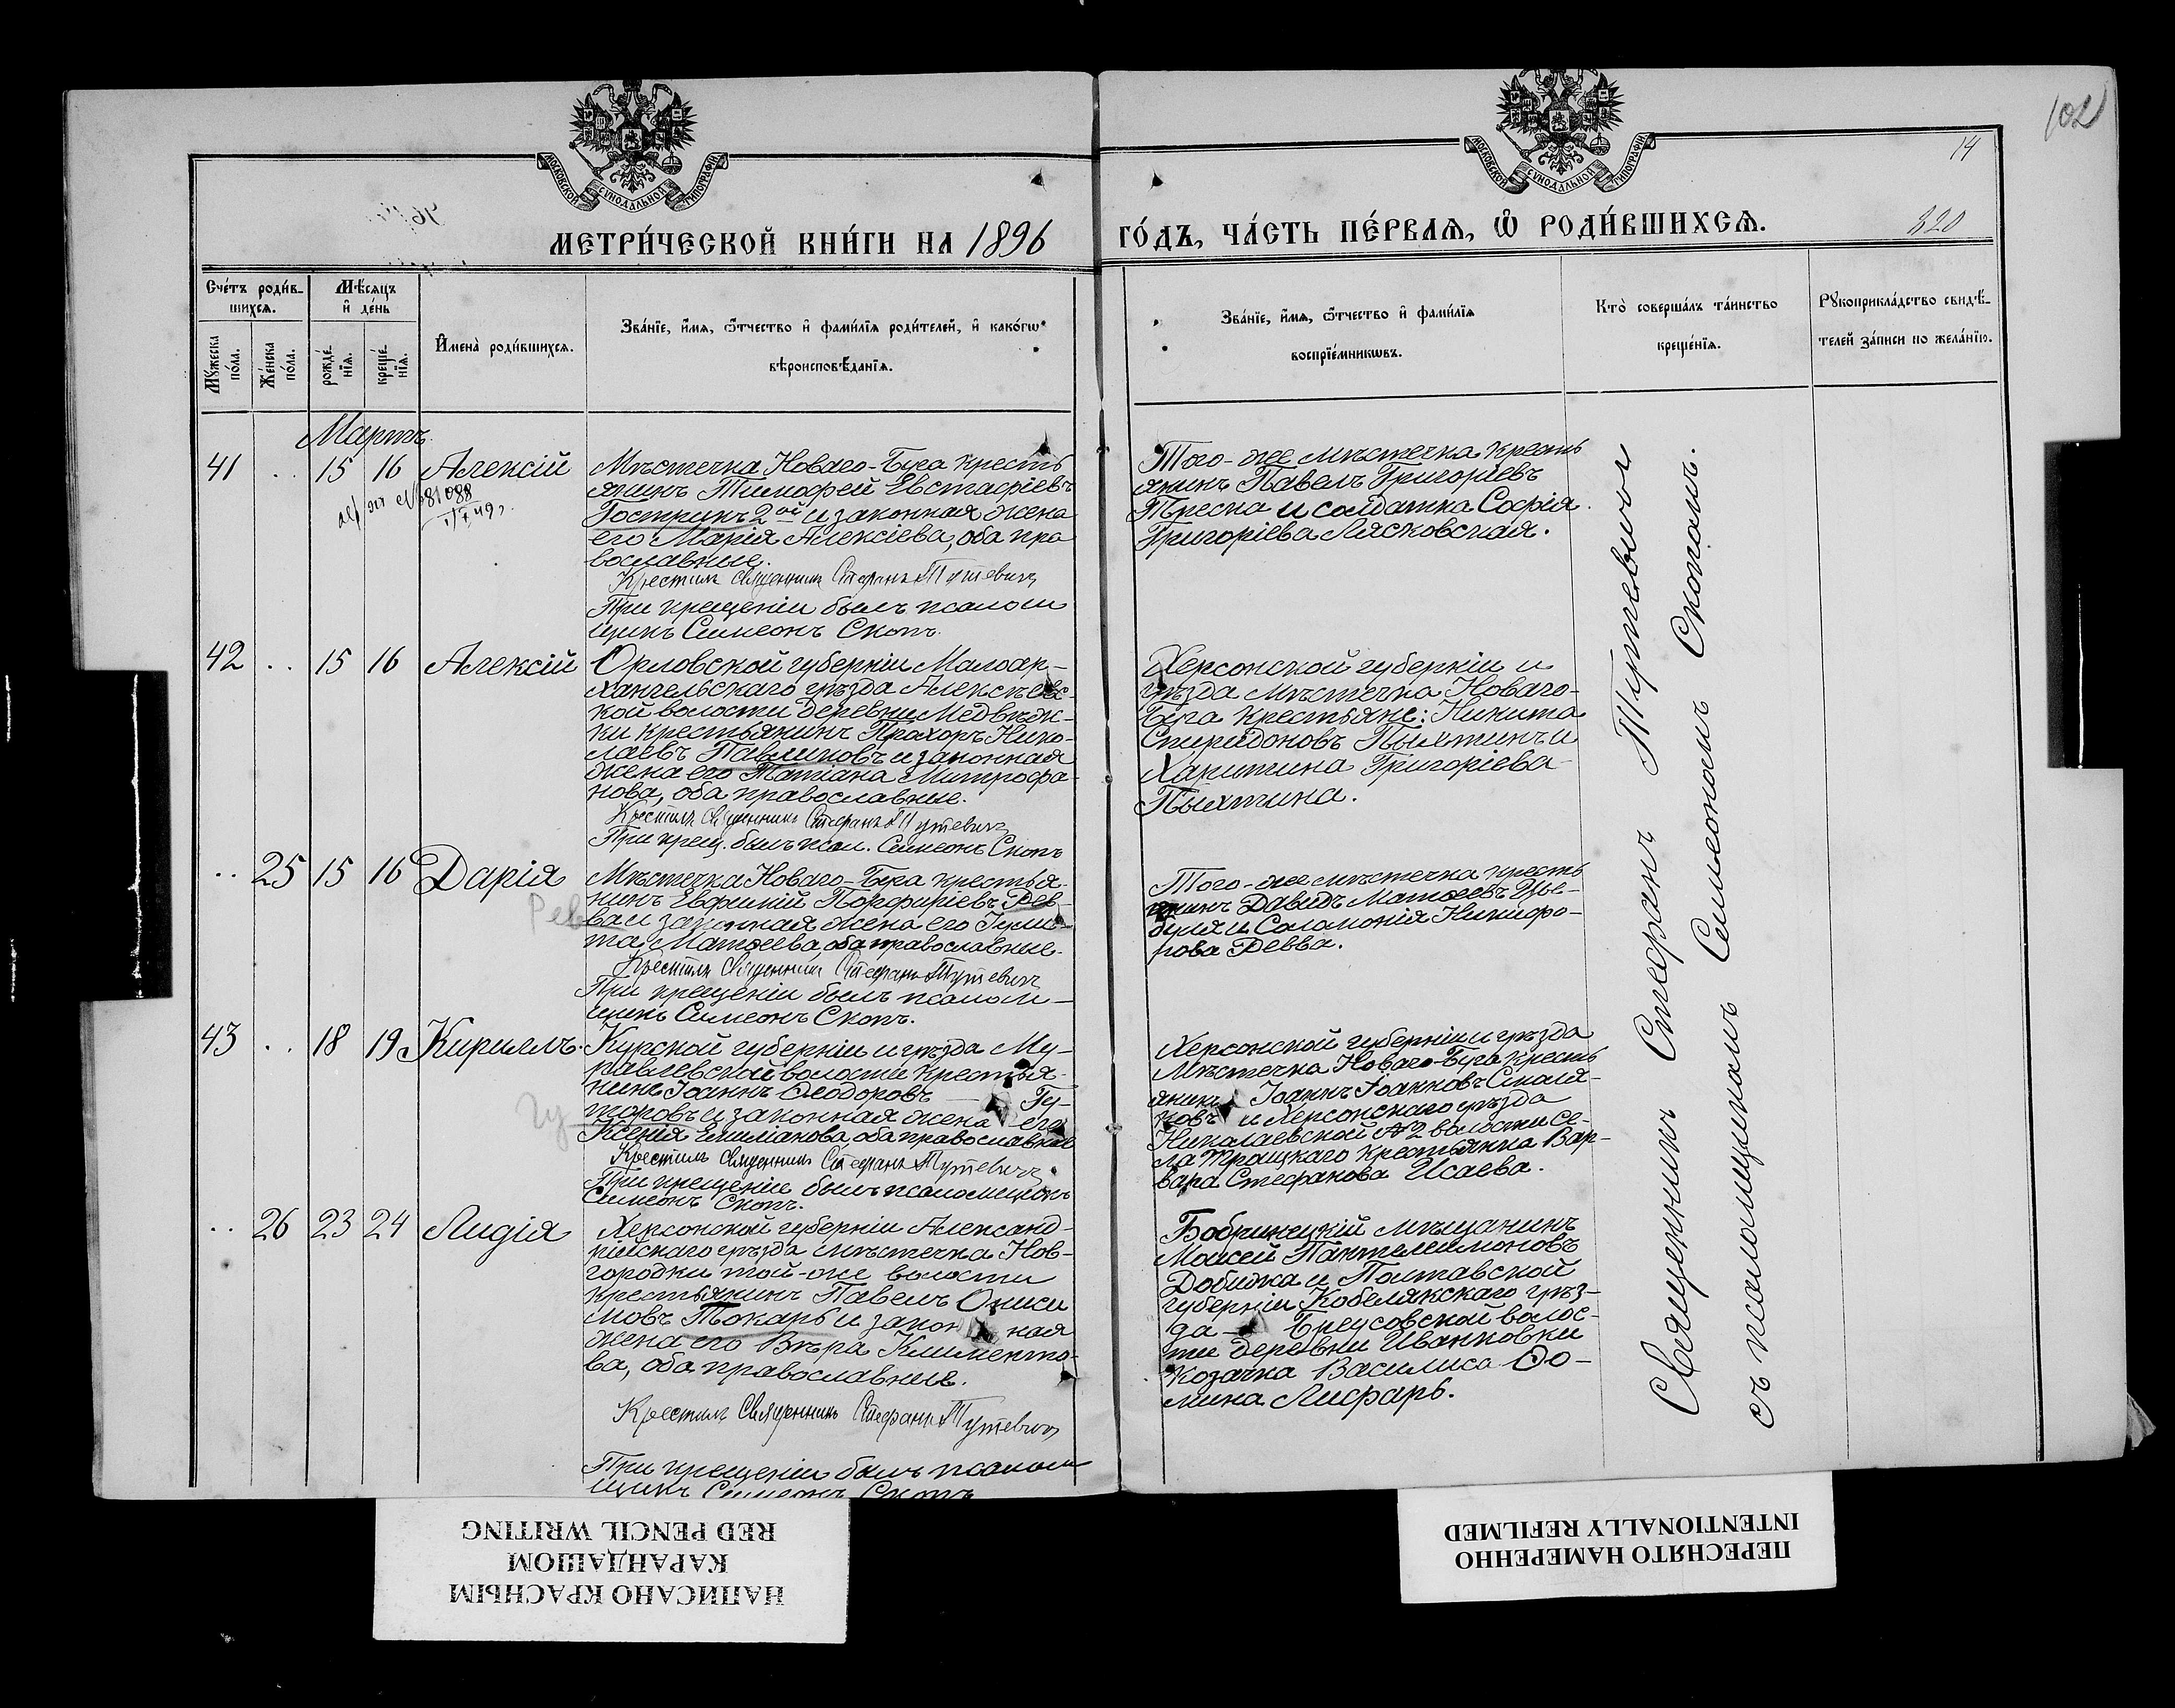 МОСКОВСКОЙ СѴНОДАЛЬНОЙ ТИПОГРАФІИ
МОСКОВСКОЙ СѴНОДАЛЬНОЙ ТИПОГРАФІИ
102
14
МЕТРИ́ЧЕСКОЙ КНИ́ГИ НА 1896
ГО́ДЪ, ЧА́СТЬ ПЕ́РВАѦ, Ѡ҆ РОДИ́ВШИХСѦ.
320
Сче́тъ роди́в-
шихсѧ.
Мꙋжеска по́ла.
Же́нска по́ла.
Мѣ́сѧцъ и҆ де́нь
рожде́-нїѧ.
креще́-нїѧ.
И҆мена̀ роди́вшихсѧ.
Зва́нїе, и҆́мѧ, ѻ҆́тчество и҆ фами́лїѧ роди́телей, и҆ како́гѡ
вѣроисповѣ́данїѧ.
Зва́нїе, и҆́мѧ, ѻ҆́тчество и҆ фами́лїѧ
воспрїе́мникѡвъ.
Кто̀ соверша́лъ та́инство
креще́нїѧ.
Рꙋкоприкла́дство свидѣ́-
телей за́писи по жела́нїю.
Мартъ
41 .. 15 16 Алексій
81088
Мѣстечка Новаго-Буга кресть
янинъ Тимофей Евстафіевъ
Гострунъ 2ой и законная жена
его Марія Алексіева, оба пра
вославные.
Крестилъ Священникъ Стефанъ Тутевичъ
При крещеніи былъ псалом
щикъ Симеонъ Скопъ.
Того-же мѣстечка кресть
янинъ Павелъ Григоріевъ
Тресна и солдатка Софія
Григоріева Лясковская.
42 .. 15 16 Алексій
Орловской губерніи Малоар-
хангельскаго уѣзда Алексѣевс-
кой волости деревни Медвѣж-
ки крестьянинъ Прохоръ Нико-
лаевъ Павлиновъ и законная
жена его Татіана Митрофа-
нова, оба православные.
Крестилъ Священникъ Стефанъ Тутевичъ
При крещ. былъ псал. Симеонъ Скопъ
Херсонской губерніи и
уѣзда мѣстечка Новаго-
Буга крестьяне: Никита
Спиридоновъ Пыхтинъ и
Харитина Григоріева
Пыхтина.
.. 25 15 16 Дарія
Рев
Мѣстечка Новаго-Буга крестья-
нинъ Евфимій Порфиріевъ Рев-
ва и законная жена его Іули-
та Матѳеева, оба православные.
Крестилъ Священникъ Стефанъ Тутевичъ
При крещеніи былъ псалом-
щикъ Симеонъ Скопъ.
Того-же мѣстечка кресть
янинъ Давидъ Матѳеевъ Цы-
буля и Соломонія Никифо-
рова Ревва.
43 .. 18 19 Кириллъ.
Гу
Курской губерніи и уѣзда Му-
равлевской волости крестья-
нинъ Іоаннъ Ѳеодоровъ Гу-
торовъ и законная жена его
Ксенія Емиліанова, оба православные
Крестилъ Священникъ Стефанъ Тутевичъ
При крещеніи былъ псаломщикъ
Симеонъ Скопъ.
Херсонской губерніи и уѣзда
Мѣстечка Новаго-Буга кресть
янинъ Іоаннъ Іоанновъ Смоля-
ковъ и Херсонскаго уѣзда
Николаевской №2 волости се-
ла Троицкаго крестьянка Вар-
вара Стефанова Исаева.
.. 26 23 24 Лидія
Херсонской губерніи Александ-
рійскаго уѣзда мѣстечка Нов-
городки той-же волости
крестьянинъ Павелъ Ониси
мовъ Токарь и закон ная
жена его Вѣра Климентο-
ва, оба православные.
Крестилъ Священникъ Стефанъ Тутевичъ
При крещеніи былъ псалом
щикъ Симеонъ Скопъ
Бобринецкій мѣщанинъ
Моисей Пантелеимоновъ
Добижа и Полтавской
губерніи Кобелякскаго уѣз-
да Бреусовской волос-
ти деревни Иванковки
козачка Василиса Ѳо-
мина Лифарь.
Священникъ Стефанъ Тутевичъ
съ псаломщикомъ Симеономъ Скопомъ.
НАПИСАНО КРАСНЫМ
КАРАНДАШОМ
RED PENCIL WRITING
ПЕРЕСНЯТО НАМЕРЕННО
INTENTIONALLY REFILMED